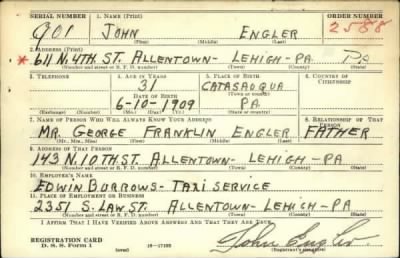 SERIAL NUMBER 1. NAME (Print) ORDER NUMBER
901 JOHN ENGLER 2588
(First) (Middle) (Last)
2. ADDRESS (Print)
* 611 N. 4TH. ST. ALLENTOWN - LEHIGH - PA. PA
(Number and street or R. F. D. number) (Town) (County) (State)
3. TELEPHONE 4. AGE IN YEARS 5. PLACE OF BIRTH 6. COUNTRY OF CITIZENSHIP
31 CATASAUQUA
DATE OF BIRTH (Town or county)
6-10-1909 PA.
(Exchange) (Number) (Mo.) (Day) (Yr.) (State or country)
7. NAME OF PERSON WHO WILL ALWAYS KNOW YOUR ADDRESS 8. RELATIONSHIP OF THAT PERSON
MR. GEORGE FRANKLIN ENGLER FATHER
(Mr., Mrs., Miss) (First) (Middle) (Last)
9. ADDRESS OF THAT PERSON
143 N. 10TH ST. ALLENTOWN - LEHIGH - PA
(Number and street or R. F. D. number) (Town) (County) (State)
10. EMPLOYER'S NAME
EDWIN BURROWS - TAXI SERVICE
11. PLACE OF EMPLOYMENT OR BUSINESS
2351 S. LAW ST. ALLENTOWN - LEHIGH - PA
(Number and street or R. F. D. number) (Town) (County) (State)
I AFFIRM THAT I HAVE VERIFIED ABOVE ANSWERS AND THAT THEY ARE TRUE.
REGISTRATION CARD
D. S. S. Form 1 (over) 16-17105 John Engler
(Registrant's signature)